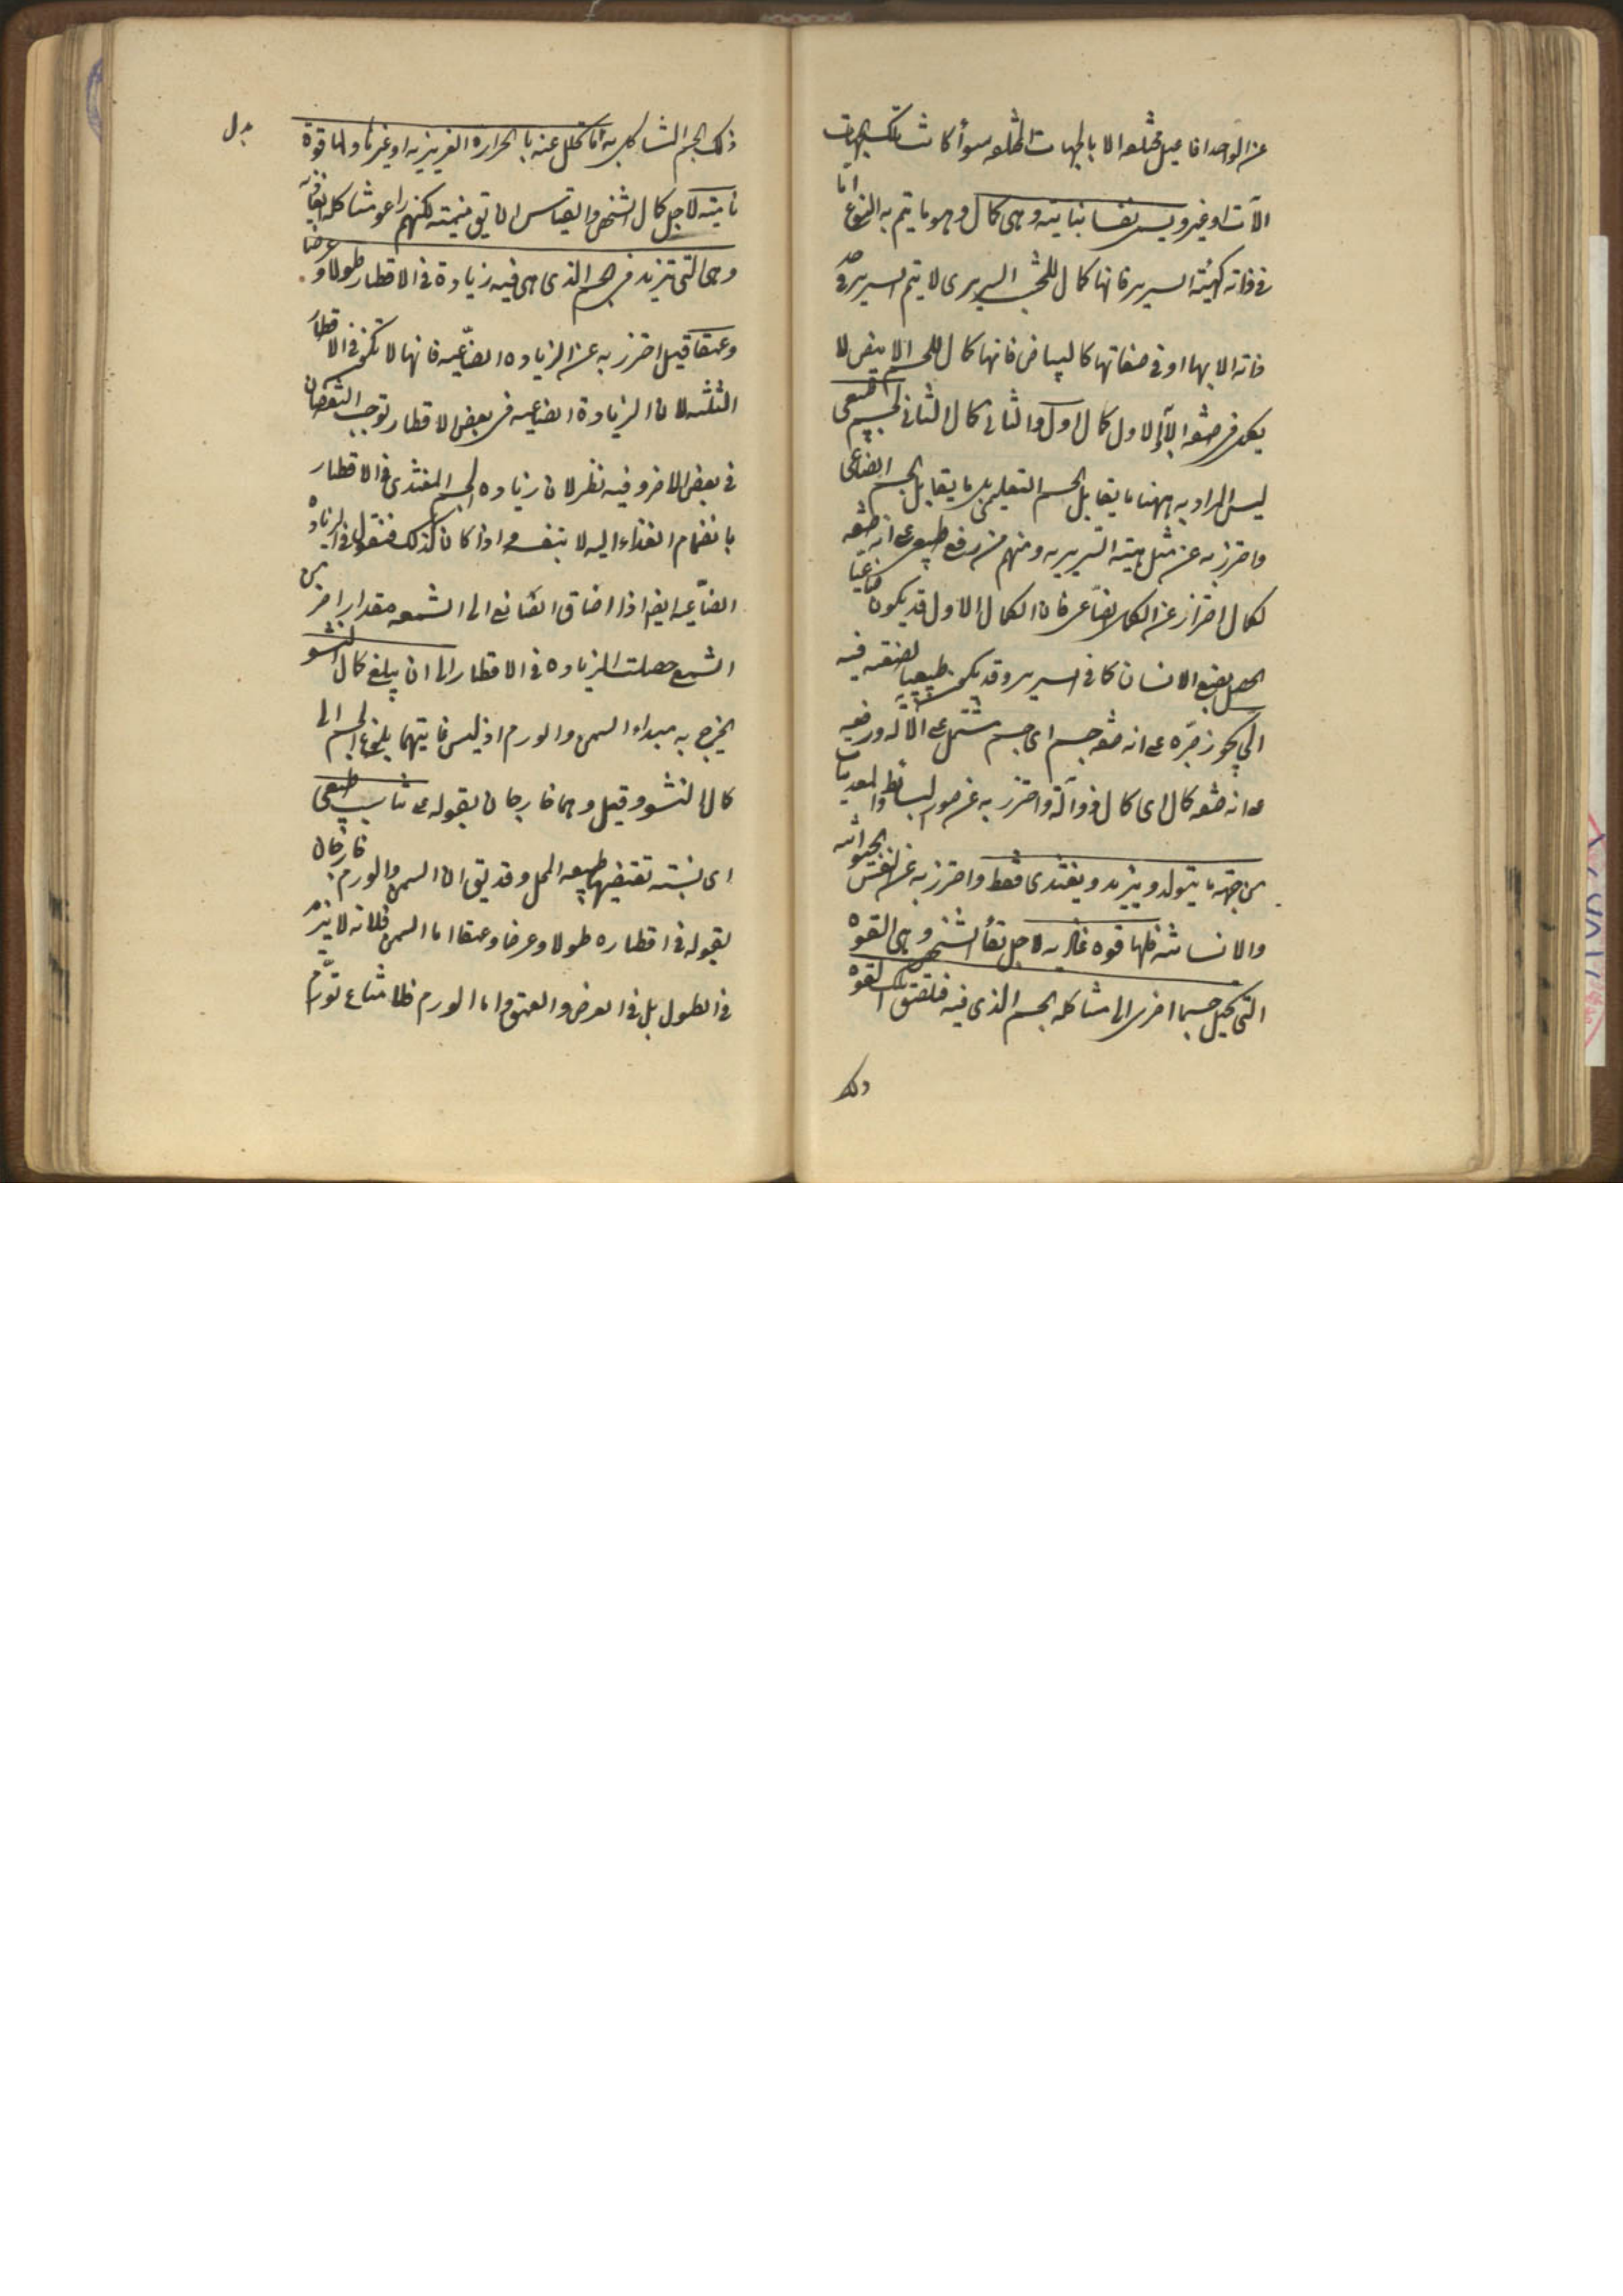 عن الواحد افاعيل مختلفه الا بالجهات المختلفه سواء كانت تلك الجهات
الآت او غيرها ويسمى نفسا نباتيه وهى كمال وهو ما يتم به النوع اما
فى ذاته كهيئة السرير فانها كمال للخشب السريرى لا يتم السرير فى حد
ذاته الا بها او فى صفاتها كالبياض فانها كمال للجسم الابيض لا
يكمل فى صفته الا به الاول كمال اول والثانى كمال الثانى لجسم طبيعى
ليس المراد به ههنا ما يقابل الجسم التعليمى بل ما يقابل الجسم الصناعى
واحترز به عن مثل هيئة السريريه ومنهم من رفع طبيعى على انه صفه
لكمال احتراز عن الكمال الصناعى فان الكمال الاول قد يكون صناعيا
يحصل بصنع الانسان كما فى السرير وقد يكون طبيعيا لا صنع فيه
الى يجوز جره على انه صفه جسم اى جسم مشتمل على الاله ورفعه
على انه صفه كمال اى كمال ذو آلة واحترز به عن صور البسائط والمعدنيات
من جهة ما يتولد ويزيد ويغتدى فقط واحترز به عن النفس الحيوانيه
والانسانيه فلها قوه غاذيه لاجل بقاء الشخص وهى القوه
التى تحيل جسما اخر الى مشاكله الجسم الذى فيه فتلصق تلك القوه
ذلك
ذلك الجسم المشاكل به بدل ما تحلل عنه بالحراره الغريزيه او غيرها ولها قوة
نامية لاجل كمال الشخص والقياس ان يق منميته لكنهم راعو مشاكله الغاذيه
وهى التى تزيد فى الجسم الذى هى فيه زيادة فى الاقطار طولا وعرضا
وعمقا قيل احترز به عن الزياده الصناعيه فانها لا تكون فى الاقطار
الثلثه لان الزيادة الصناعيه فى بعض الاقطار توجب النقصان
فى بعض الاخر وفيه نظر لان زياده الجسم المغتذى فى الاقطار
بانضمام الغذاء اليه لا بنفسه واذا كان كذلك فنقول فى الزياده
الصناعيه ايضا اذا اضاف الصانع الى الشمعه مقدارا اخر من
الشمع حصلت الزياده فى الاقطار الى ان يبلغ كمال النشو
يخرج به مبداء السمن والورم اذ ليس غايتهما بلوغ الجسم الى
كمال النشو وقيل وهما خارجان بقوله على تناسب طبيعى
اى نسبته تقتضيها طبيعه المحل وقد يق ان السمن والورم خارجان
بقوله فى اقطاره طولا وعرضا وعمقا اما السمن فلانه لا يزيد
فى الطول بل فى العرض والعمق واما الورم فلامتناع تورم